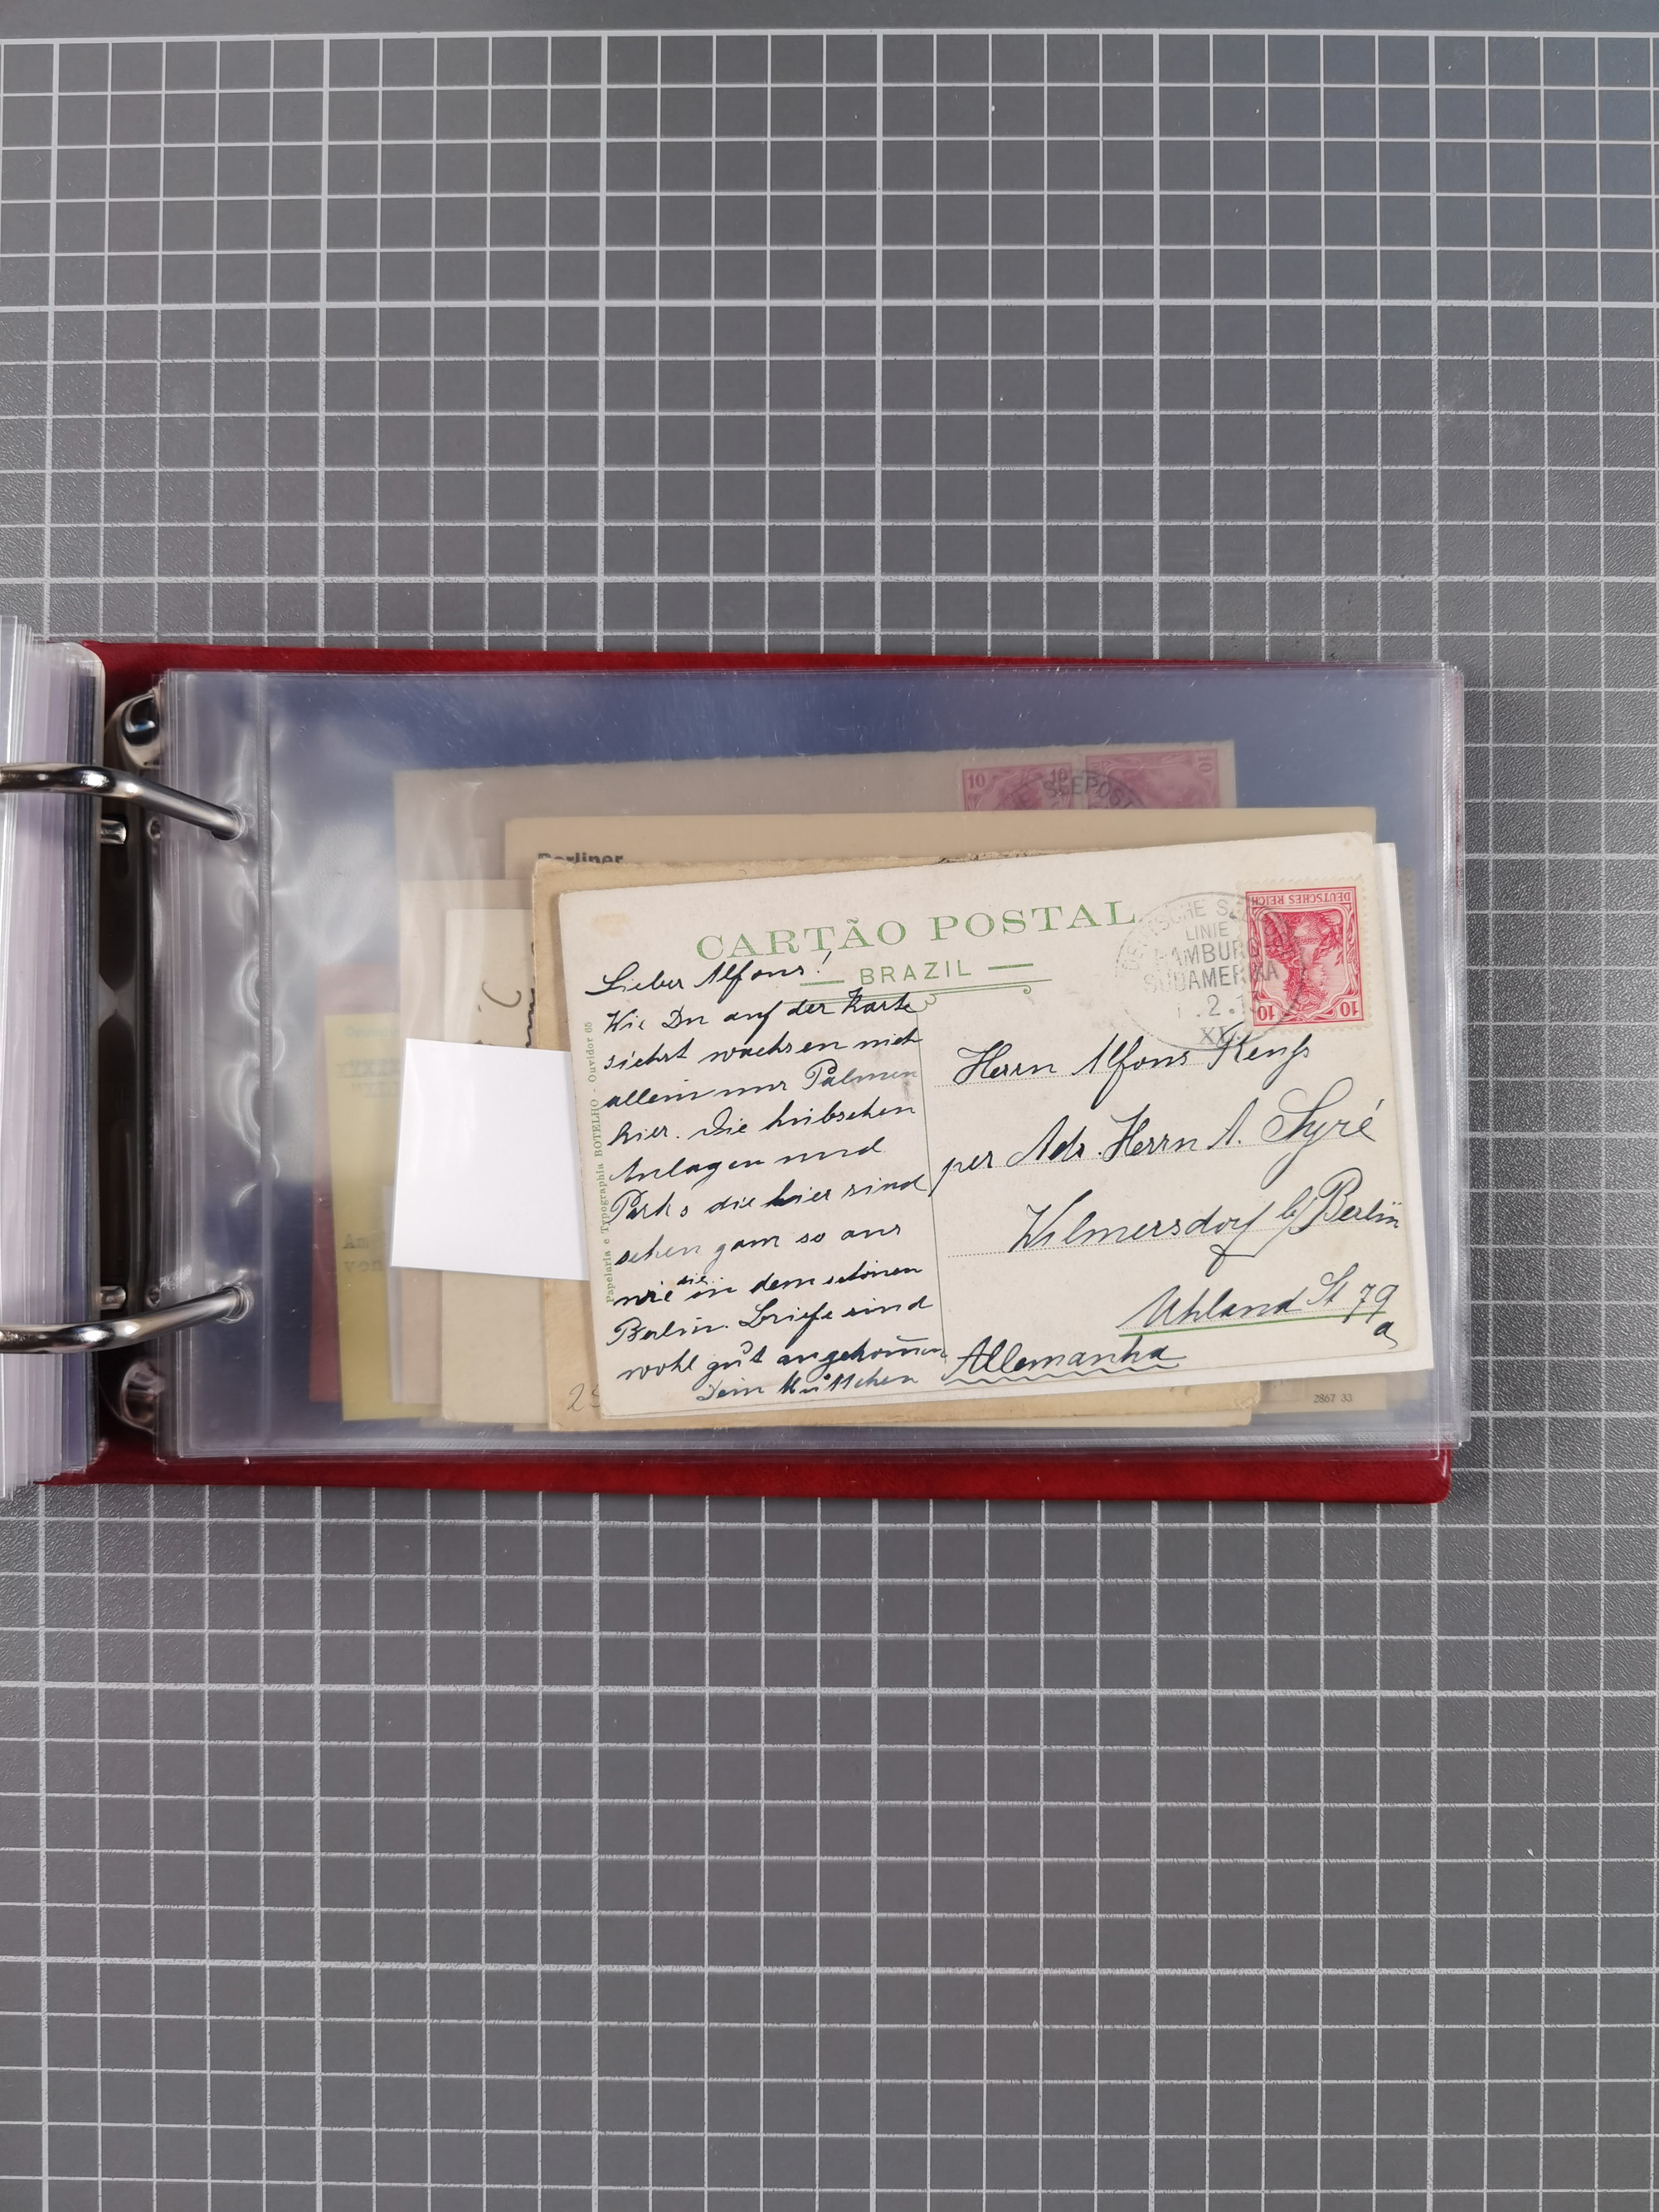 10 10 10
SEEPOST
Berliner
CARTÃO POSTAL
BRAZIL
DEUTSCHE S
LINIE
HAMBURG
SÜDAMERIKA
.2.1
XI
DEUTSCHES REICH
10 10
Papelaria e Typographia BOTELHO - Ouvidor 65
Lieber Alfons!
Wie Du auf der Karte
siehst wachsen nich
allein nur Palmen
hier. Die hübschen
Anlagen und
Parks die hier sind
sehen ganz so aus
wie die in dem schönen
Berlin. Briefe sind
wohl gut angekom̄en
Dein Muttchen
Herrn Alfons
per Adr. Herrn A. Syré
Wilmersdorf b/Berlin
Uhland St 79
a
Allemanha
2867 33